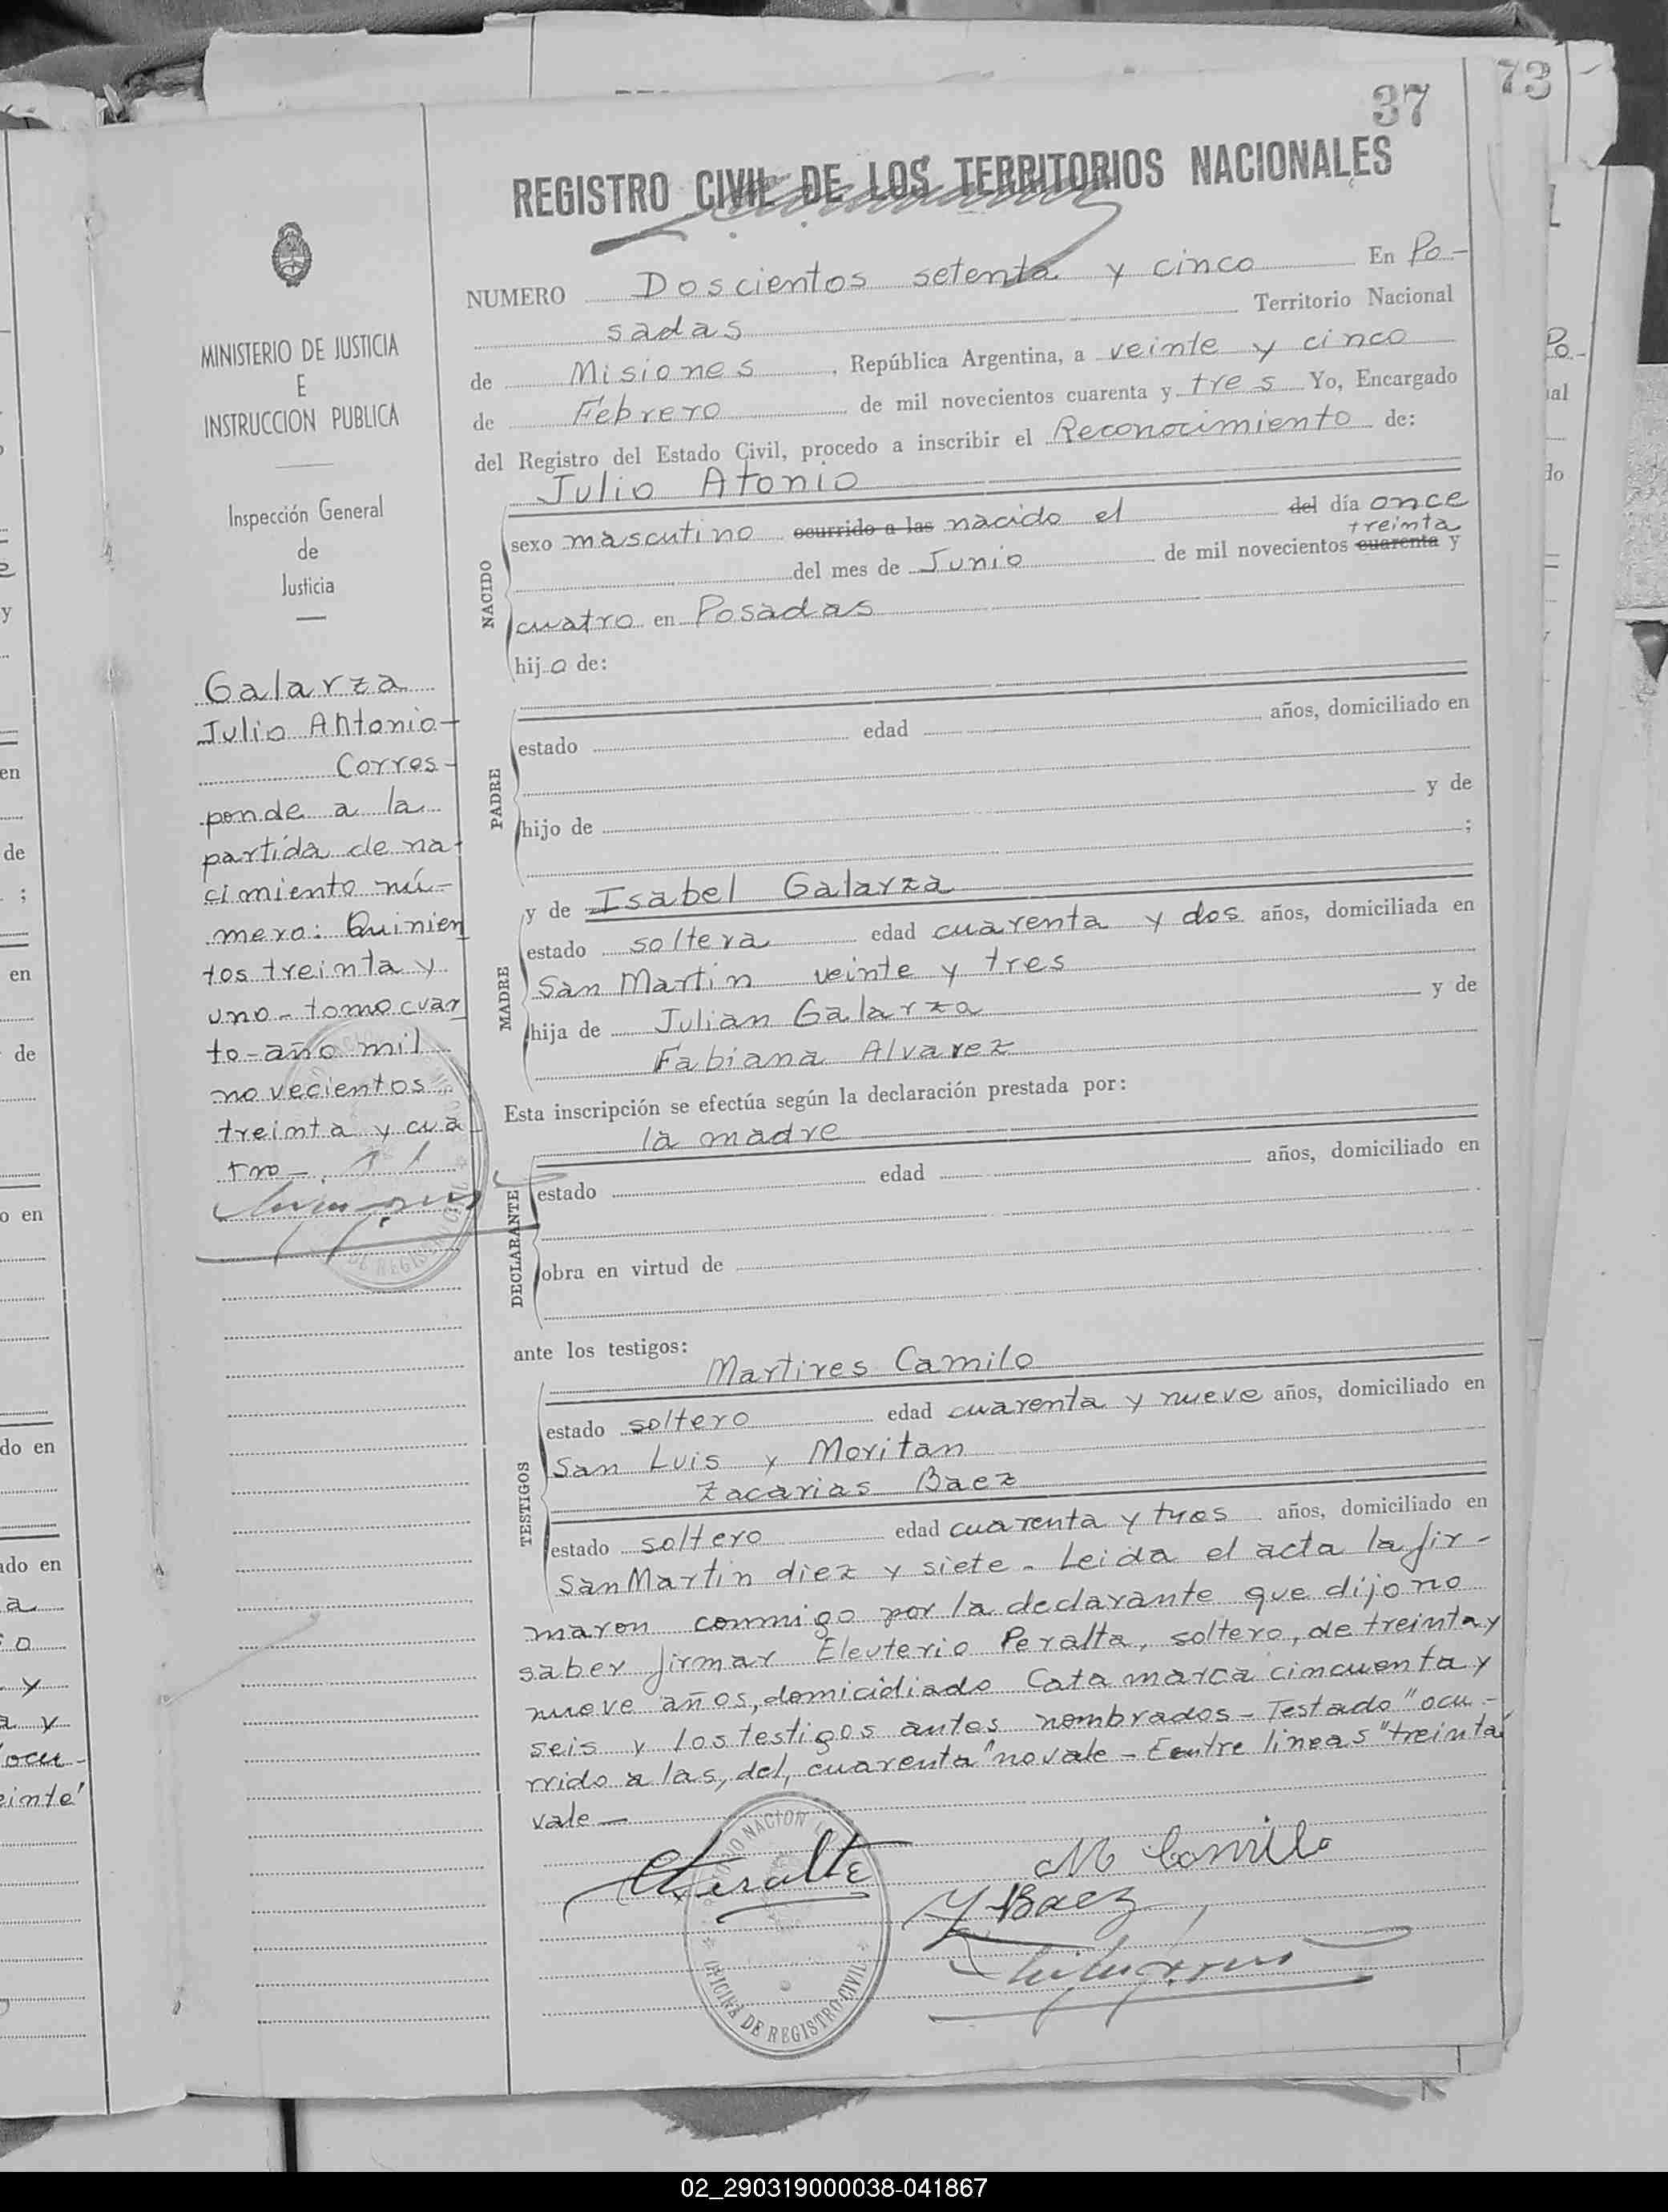 37
73
REGISTRO CIVIL DE LOS TERRITORIOS NACIONALES
NUMERO Doscientos setenta y cinco En Po-
sadas Territorio Nacional
de Misiones, República Argentina, a veinte y cinco
de Febrero de mil novecientos cuarenta y tres Yo, Encargado
del Registro del Estado Civil, procedo a inscribir el Reconocimiento de:
MINISTERIO DE JUSTICIA
E
INSTRUCCION PUBLICA
Inspección General
de
Justicia
Galarza
Julio Antonio
Corres-
ponde a la
partida de na-
cimiento nú-
mero: Quinien
tos treinta y
uno - tomo cuar
to - año mil
novecientos
treinta y cua
tro -
NACIDO
Julio Atonio
sexo masculino ocurrido a las nacido el del día once
treinta
del mes de Junio de mil novecientos cuarenta y
cuatro en Posadas
hijo de:
PADRE
estado edad años, domiciliado en
hijo de y de
;
MADRE
y de Isabel Galarza
estado soltera edad cuarenta y dos años, domiciliada en
San Martin veinte y tres
hija de Julian Galarza y de
Fabiana Alvarez
Esta inscripción se efectúa según la declaración prestada por:
la madre
DECLARANTE
estado edad años, domiciliado en
obra en virtud de
ante los testigos:
TESTIGOS
Martires Camilo
estado soltero edad cuarenta y nueve años, domiciliado en
San Luis y Moritan
Zacarias Baez
estado soltero edad cuarenta y tres años, domiciliado en
San Martin diez y siete - Leida el acta la fir-
maron conmigo por la declarante que dijo no
saber firmar Eleuterio Peralta, soltero, de treinta y
nueve años, domicidiado Catamarca cincuenta y
seis y los testigos antes nombrados - Testado "ocu-
rrido a las, del, cuarenta" no vale - Eentre lineas "treinta"
vale -
EPeralta
M Camilo
Z Baez
OFICINA DE REGISTRO CIVIL
02_290319000038-041867